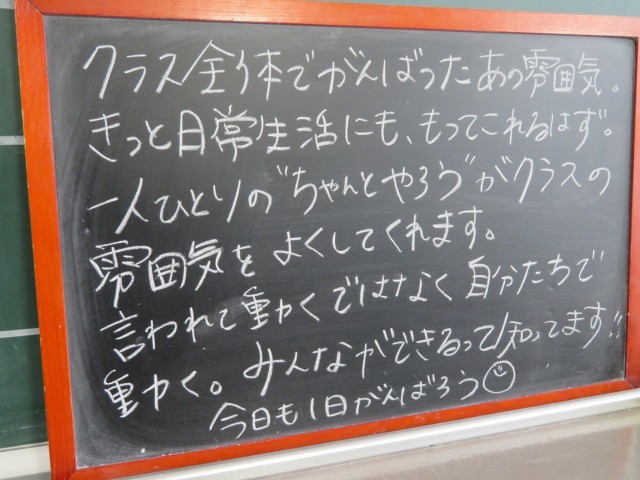 クラス全体でがんばったあの雰囲気。
きっと日常生活にも、もってこれるはず。
一人ひとりの"ちゃんとやろう"がクラスの
雰囲気をよくしてくれます。
言われて動くではなく自分たちで
動く。みんなができるって知ってます!!
今日も1日がんばろう☺